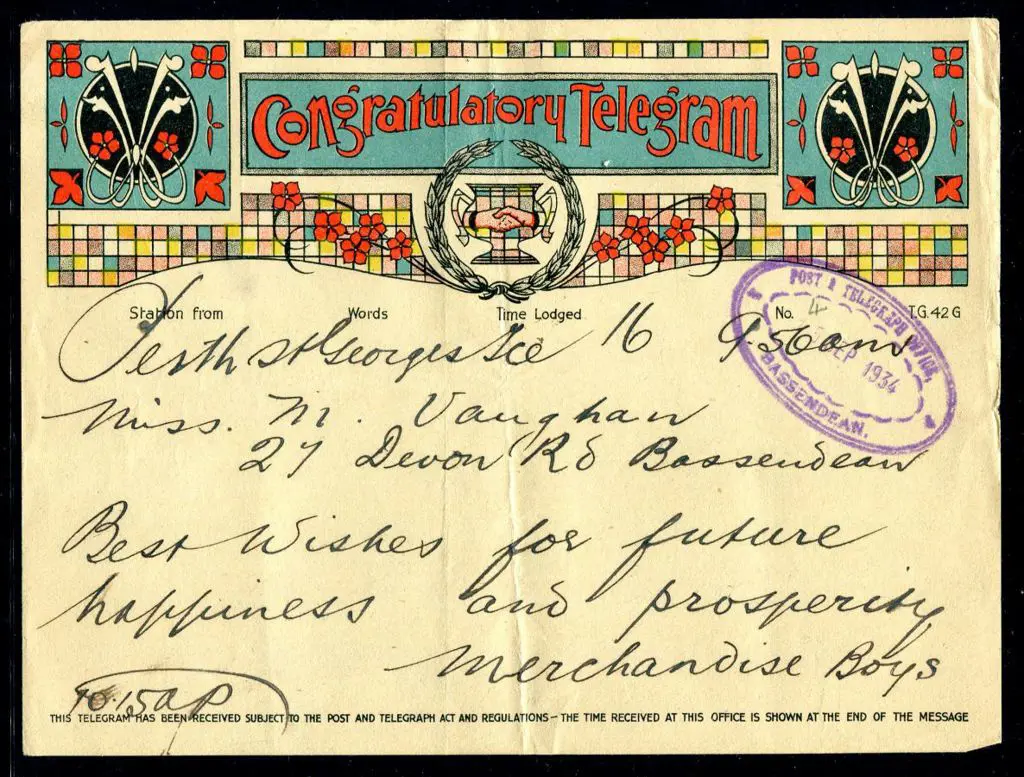 Congratulatory Telegram
Station from Words Time Lodged No. T.G. 42 G
Perth St Georges Tce 16 9.50am
POST & TELEGRAPH OFFICE,
4 SEP 1934
BASSENDEAN.
Miss. M. Vaughan
27 Devon Rd Bassendean
Best Wishes for future
happiness and prosperity
Merchandise Boys
10.15 a
THIS TELEGRAM HAS BEEN RECEIVED SUBJECT TO THE POST AND TELEGRAPH ACT AND REGULATIONS – THE TIME RECEIVED AT THIS OFFICE IS SHOWN AT THE END OF THE MESSAGE